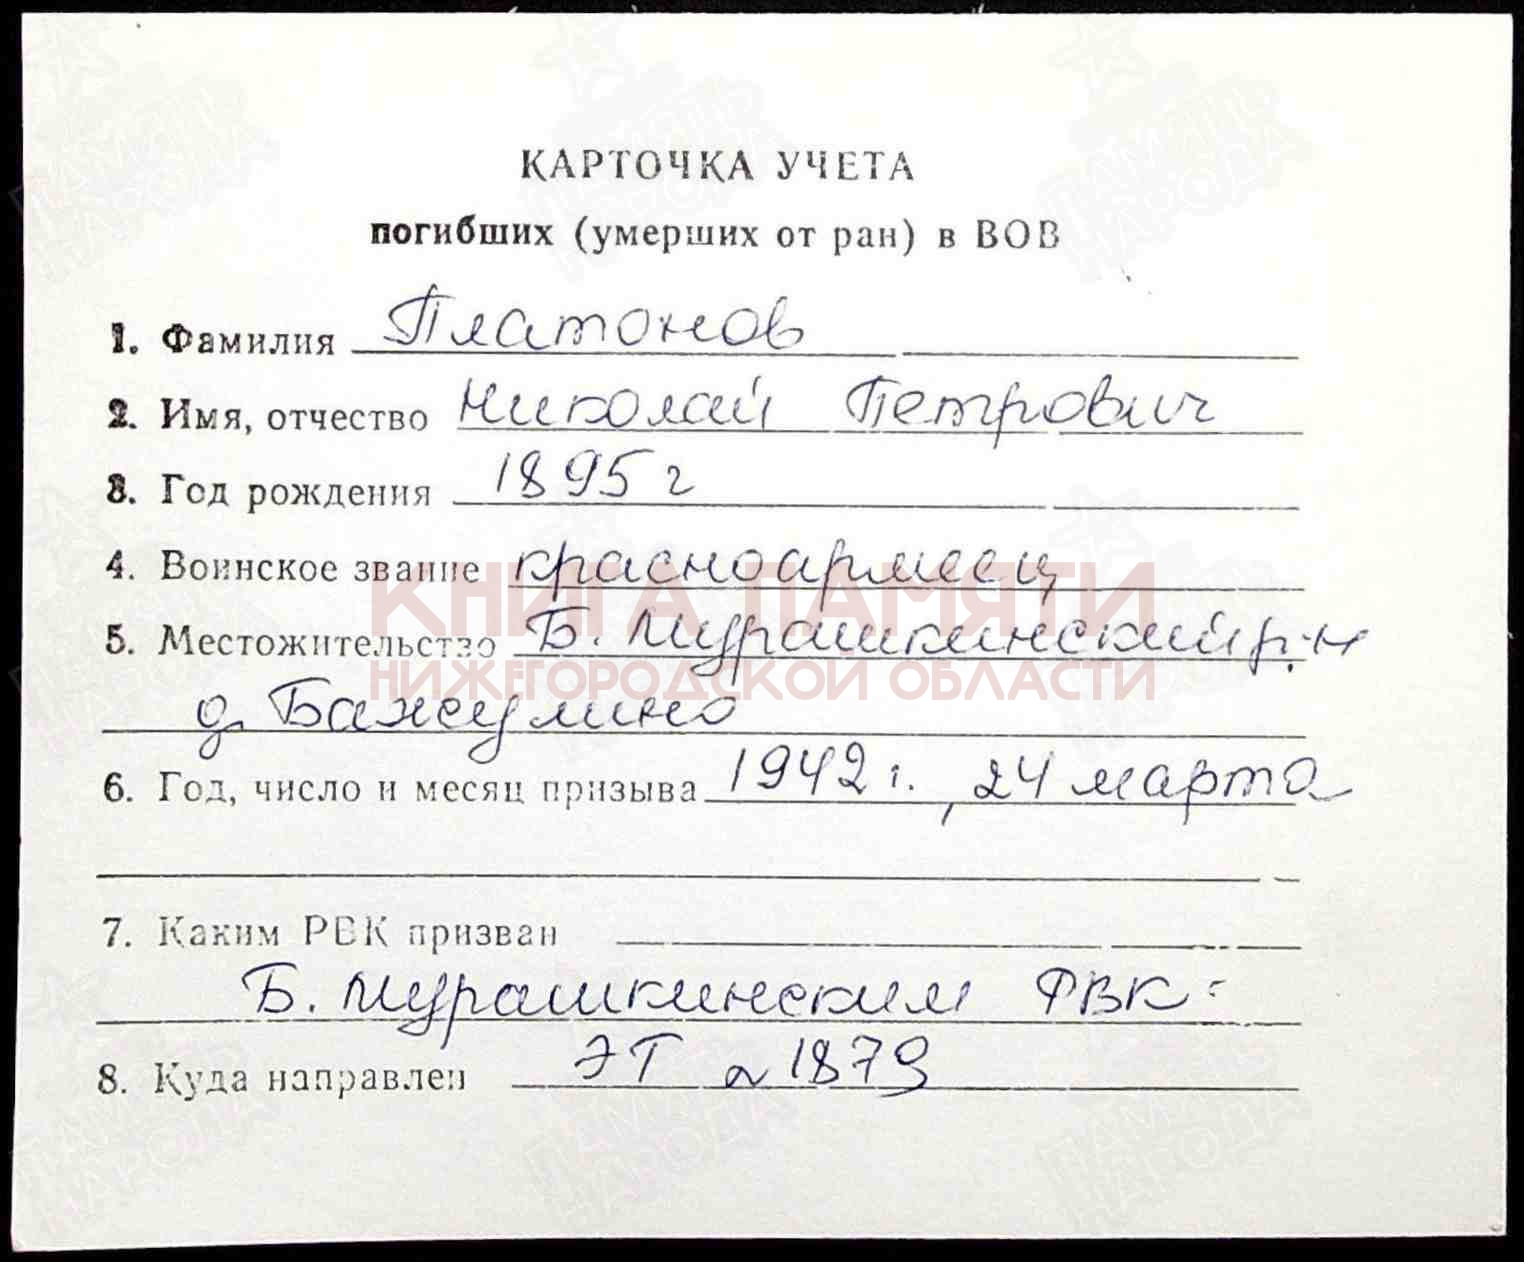 КАРТОЧКА УЧЕТА
погибших (умерших от ран) в ВОВ
1. Фамилия Платонов
2. Имя, отчество Николай Петрович
3. Год рождения 1895 г
4. Воинское звание красноармеец
КНИГА ПАМЯТИ
5. Местожительство Б. Мурашкинский р-н
НИЖЕГОРОДСКОЙ ОБЛАСТИ
д. Бажулино
6. Год, число и месяц призыва 1942 г., 24 марта
7. Каким РВК призван
Б. Мурашкинским РВК
8. Куда направлен ЭТ N 1879
ПАМЯТЬ НАРОДА